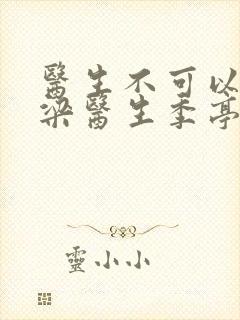 醫生不可以
梁醫生季亭
靈小小